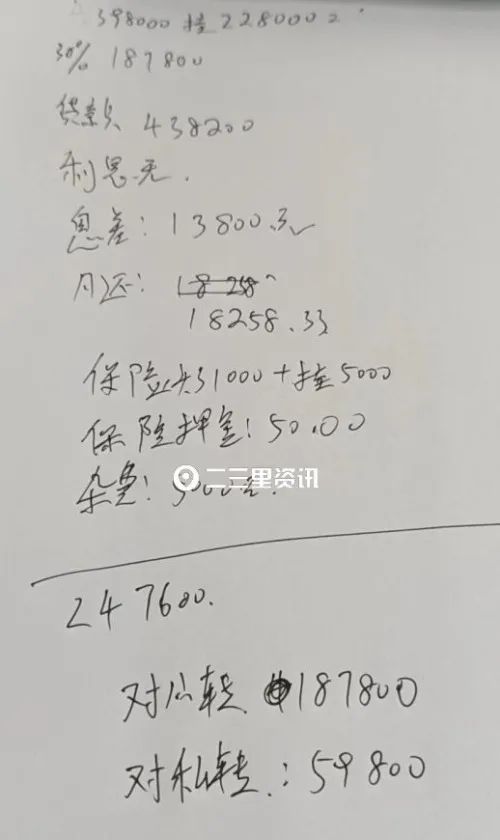 398000 挂 228000元
30% 187800
贷款 438200
利息无.
息差: 13800元
月还: 18258
18258.33
保险头31000+挂5000
保险押金: 5000
杂费: 5000元.
二三里资讯
247600.
对公转 187800
对私转: 59800